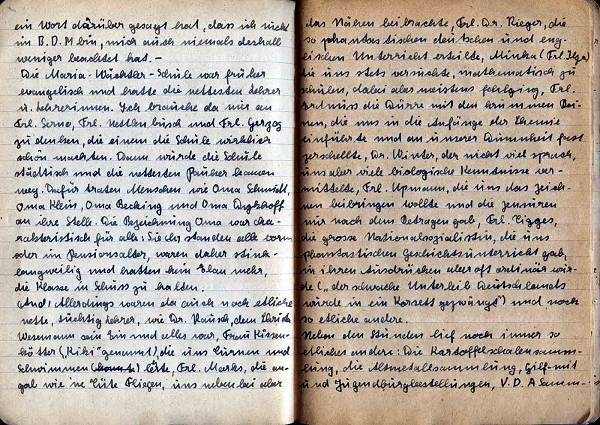 ein Wort darüber gesagt hat, dass ich nicht
im B.D.M bin, mich auch niemals deshalb
weniger beachtet hat. –
Die Maria-Wächtler-Schule war früher
evangelisch und hatte die nettesten Lehrer
u. Lehrerinnen. Ich brauche da nur an
Frl. Serno, Frl. Nettlenbusch und Frl. Herzog
zu denken, die einem die Schule wirklich
schön machten. Dann wurde die Schule
städtisch und die nettesten Pauker kamen
weg. Dafür traten Menschen wie Oma Schmidt,
Oma Klein, Oma Becking und Oma Dyckhoff
an ihre Stelle. Die Bezeichnung Oma war cha-
rakteristisch für alle: Sie standen alle vorm
oder im Pensionsalter, waren daher stink-
langweilig und hatten kein Elan mehr,
die Klasse in Schuss zu halten.
Allerdings waren da auch noch etliche
nette, tüchtig Lehrer, wie Dr. Rausch, dem
Wesemann sein Ein und alles war, Frau Kissen-
kötter („Kiki" genannt), die uns Turnen und
Schwimmen lehrte, Frl. Marks, die an-
gab wie ne Tüte Fliegen, uns nebenbei aber
das Nähen beibrachte, Frl. Dr. Rieger, die
so phantastischen deutschen und eng-
lischen Unterricht erteilte, Minka (Frl.
die uns stets versuchte, mathematisch zu
schulen, dabei aber meistens fehlging, Frl.
die Dürre mit den krummen Bei-
nen, die uns in die Anfänge der Chemie
einführte und an unserer Dummheit fast
zerschellte, Dr. Winter, der nicht viel sprach,
uns aber viel biologische Kenntnisse ver-
mittelte, Frl. Upmann, die uns das Zeich-
nen beibringen wollte und die Zensuren
nur nach dem Betragen gab, Frl. Tigges,
die grosse Nationalsozialistin, die uns
phantastischen Geschichtsunterricht gab,
in ihren Ausdrücken aber oft ordinär wur-
de („der schwache Unterleib Deutschlands
wurde in ein Korsett gezwängt") und noch
so etliche andere.
Neben den Stunden lief noch immer so
etliches andere: Die Kartoffelschalensamm-
lung, die Altmetallsammlung, Hilf-mit
und Jugendburgbestellungen, V.D.A Samm-